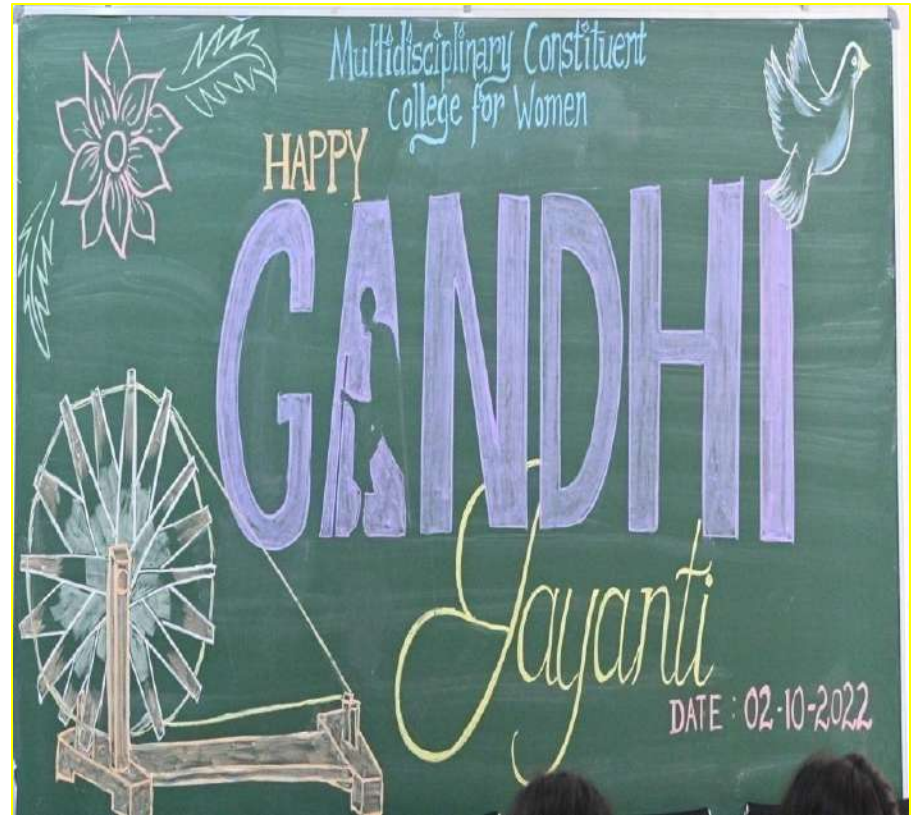 Multidisciplinary Constituent
College for Women
HAPPY
GANDHI
Jayanti
DATE : 02-10-2022